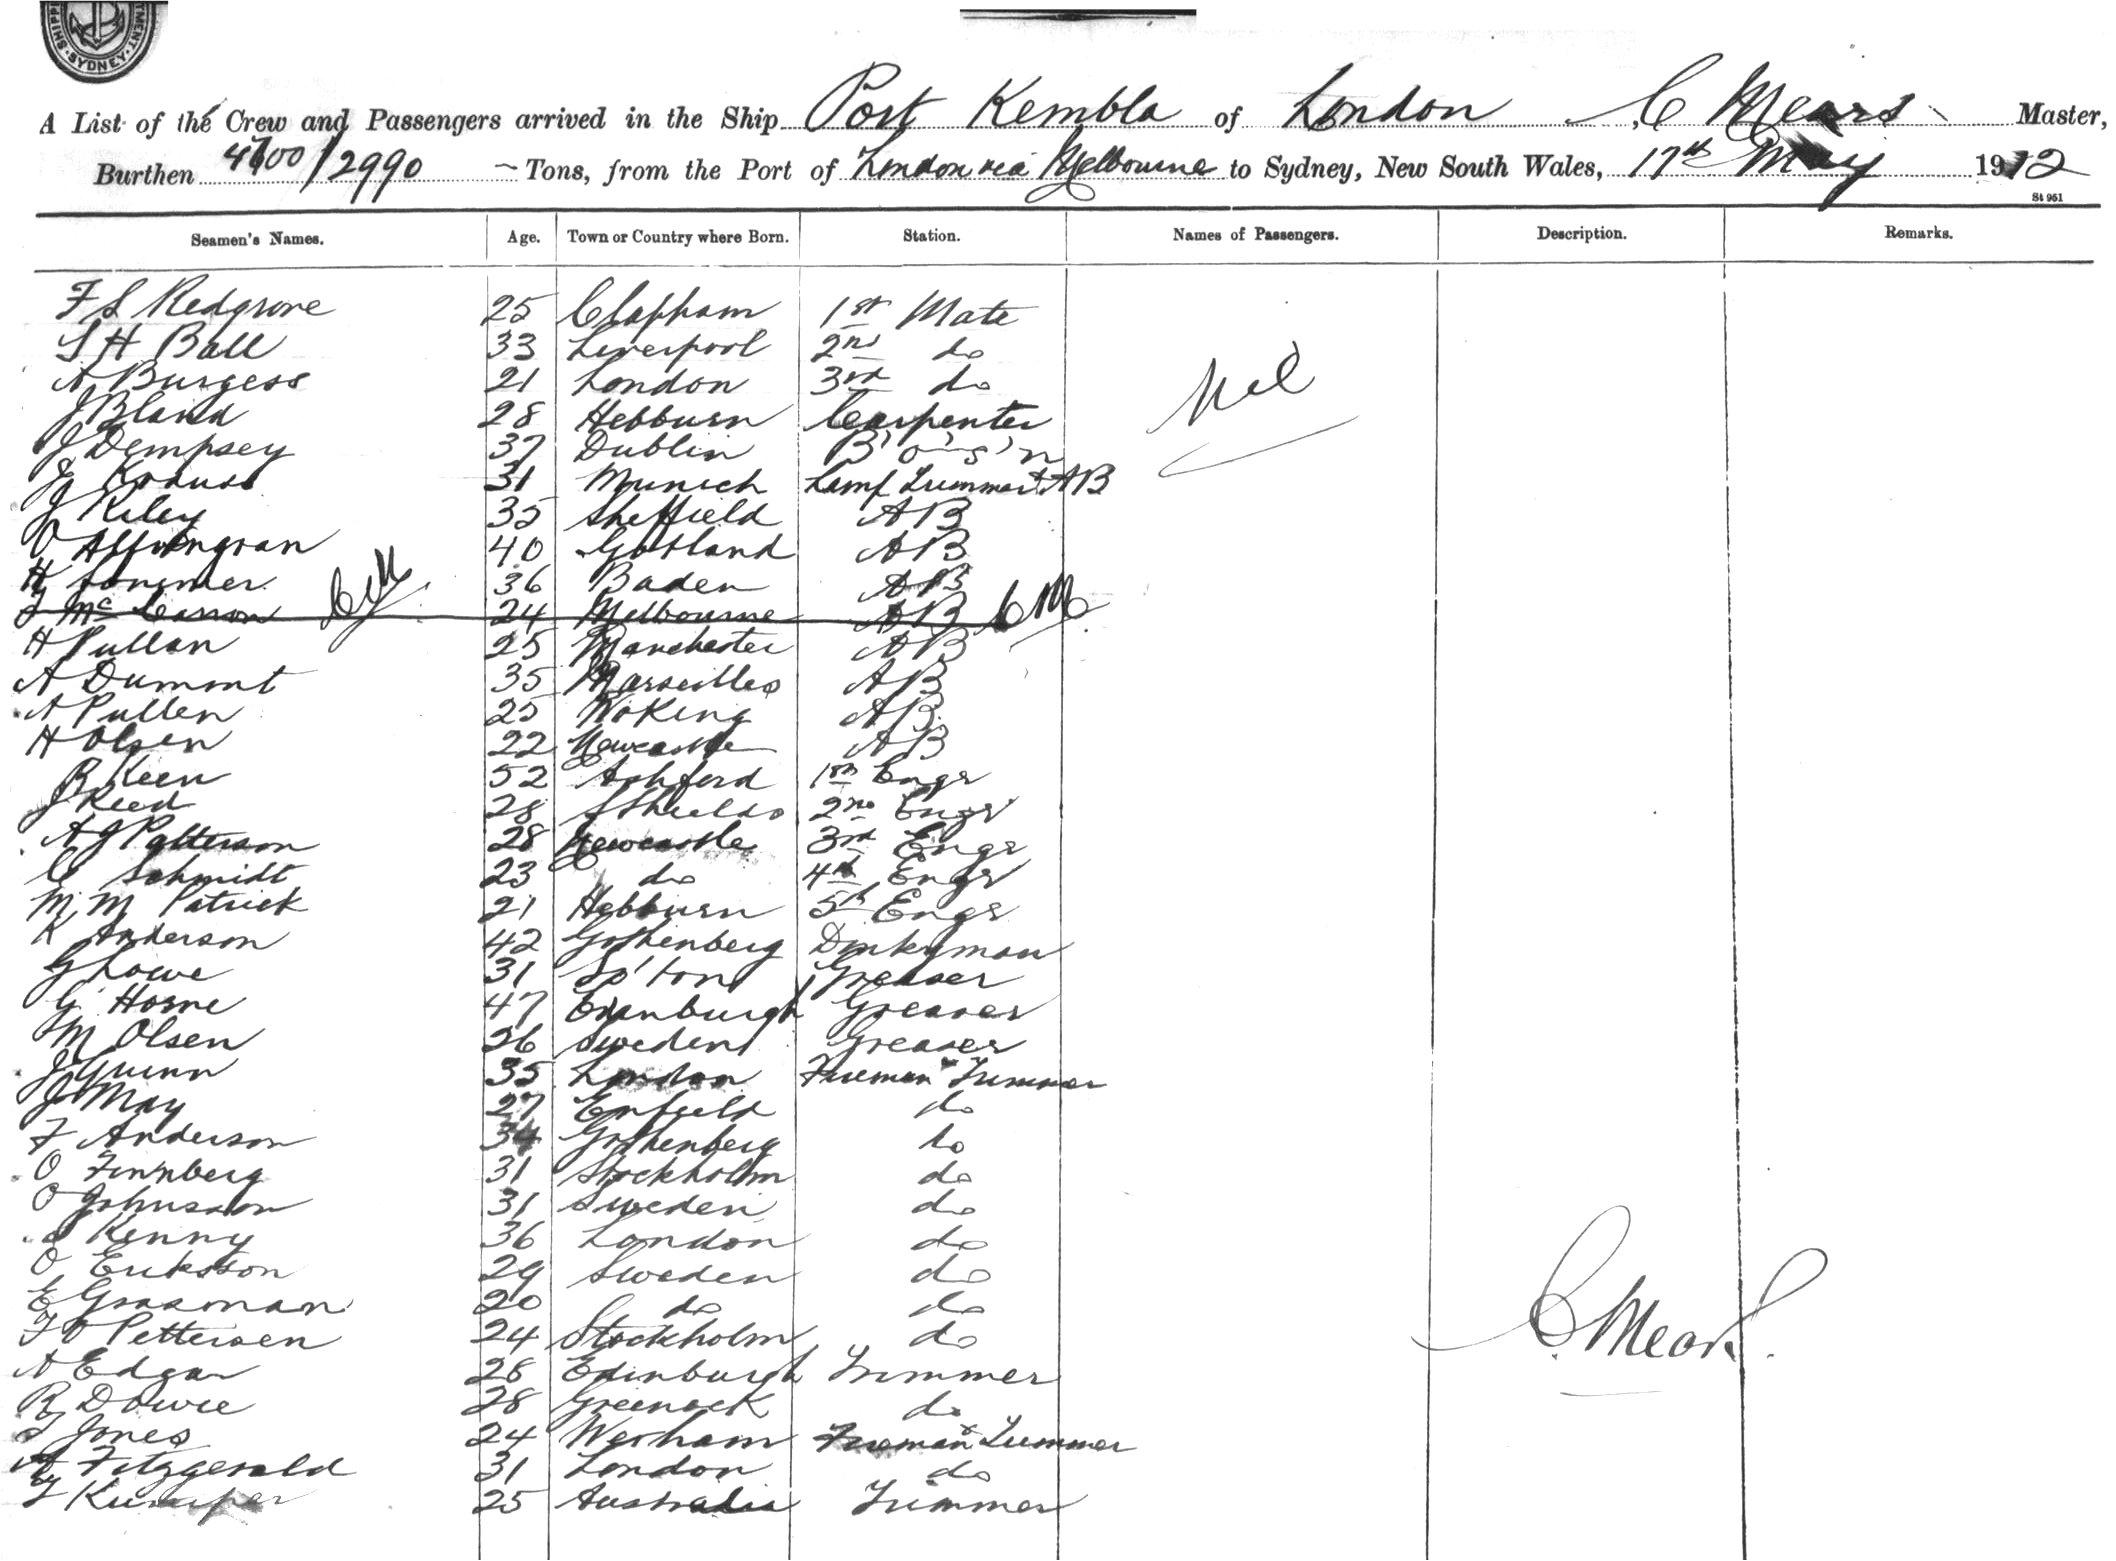 SHIPPI TMENT. SYDNEY
A List of the Crew and Passengers arrived in the Ship Port Kembla of London , C Mears Master,
Burthen 4700/2990 Tons, from the Port of London via Melbourne to Sydney, New South Wales, 17th May 1912
St 951
Seamen's Names. Age. Town or Country where Born. Station. Names of Passengers. Description. Remarks.
F S Redgrove 25 Clapham 1st Mate
S H Ball 33 Liverpool 2nd do
A Burgess 21 London 3rd do
Nil
J Bland 28 Hebburn Carpenter
J Dempsey 37 Dublin B'o's'n
J Krauss 31 Munich Lamp Trimmer & AB
J Riley 35 Sheffield AB
O 40 Gotland AB
H 36 Baden AB
J Mc Casson CM 24 Melbourne AB CM
H Pullan 25 Manchester AB
A Dumont 35 Marseilles AB
A Pullen 25 Woking AB
H Olsen 22 Newcastle AB
R Keen 52 Ashford 1st Engr
J Reed 28 S Shields 2nd Engr
A J Patterson 28 Newcastle 3rd Engr
C Schmidt 23 do 4th Engr
M M Patrick 21 Hebburn 5th Engr
K Anderson 42 Gothenberg Donkyman
G Lowe 31 So'ton Greaser
G Horne 47 Edinburgh Greaser
M Olsen 26 Sweden Greaser
J Gunn 35 London Fireman & Trimmer
J May 27 Enfield do
F Anderson 34 Gothenberg do
O Finnberg 31 Stockholm do
O Johnsson 31 Sweden do
J Kenny 36 London do
O Eriksson 29 Sweden do
E Grasman 20 do do
F O Pettersen 24 Stockholm do
C Mears.
A Edgar 28 Edinburgh Trimmer
R Dowie 28 Greenock do
J Jones 24 Werham Fireman & Trimmer
A Fitzgerald 31 London do
F 25 Australia Trimmer